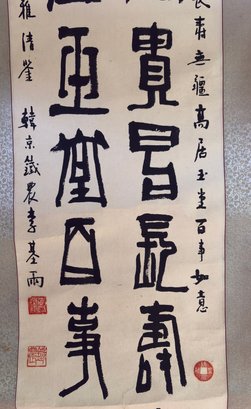 長壽無疆高居玉堂百事如意
貴昌長壽
玉堂百事
雅清鑒
韓京鐵農李基雨